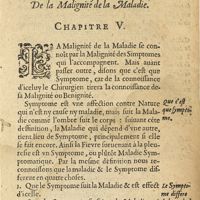 De la Malignité de la Maladie.
CHAPITRE V.
LA Malignité de la Maladie se con-
noist par la Malignité des Simptomes
qui l'accompagnent. Mais avant
passer outre, disons que c'est que
Symptome, car de la connoissance
d'iceluy le Chirurgien tirera la connoissance de-
la Malignité ou Benignité.
Symptome est vne affection contre Nature
qui n'est ny cause ny maladie, mais suit la Mala-
die comme l'ombre fait le corps: suivant donc cet-
te definition, la Maladie qui dépend d'vne autre,
tient lieu de Symptome, principalement si elle
se fait encore. Ainsi la Fievre survenant à la pleu-
resie est un Symptome, ou plûtôt Maladie Symp-
tomatique. Par la mesme definition nous recon-
noissons que la maladie & le Symptome dif-
ferent en trois choses.
1. Que le Symptome suit la Maladie & est effect
d'icelle.
Que c'est
que Sympto-
me.
Le Sympto-
me differe